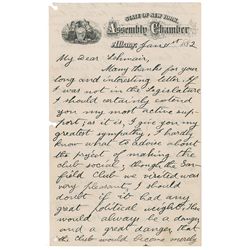 STATE OF NEW YORK.
Assembly Chamber
Albany, Jany 1st 1882
My Dear
Many thanks for your
long and interesting letter. If
I was not in the Legislature
I should certainly extend
you my most active sup-
port; as it is, I give you my
greatest sympathy. I hardly
know what to advise about
the project of making the
club social; though the Gar-
field Club we visited was
very pleasant, I should
doubt if it had any
great political weight; there
would always be a danger,
and a great danger, that
the club would become merely